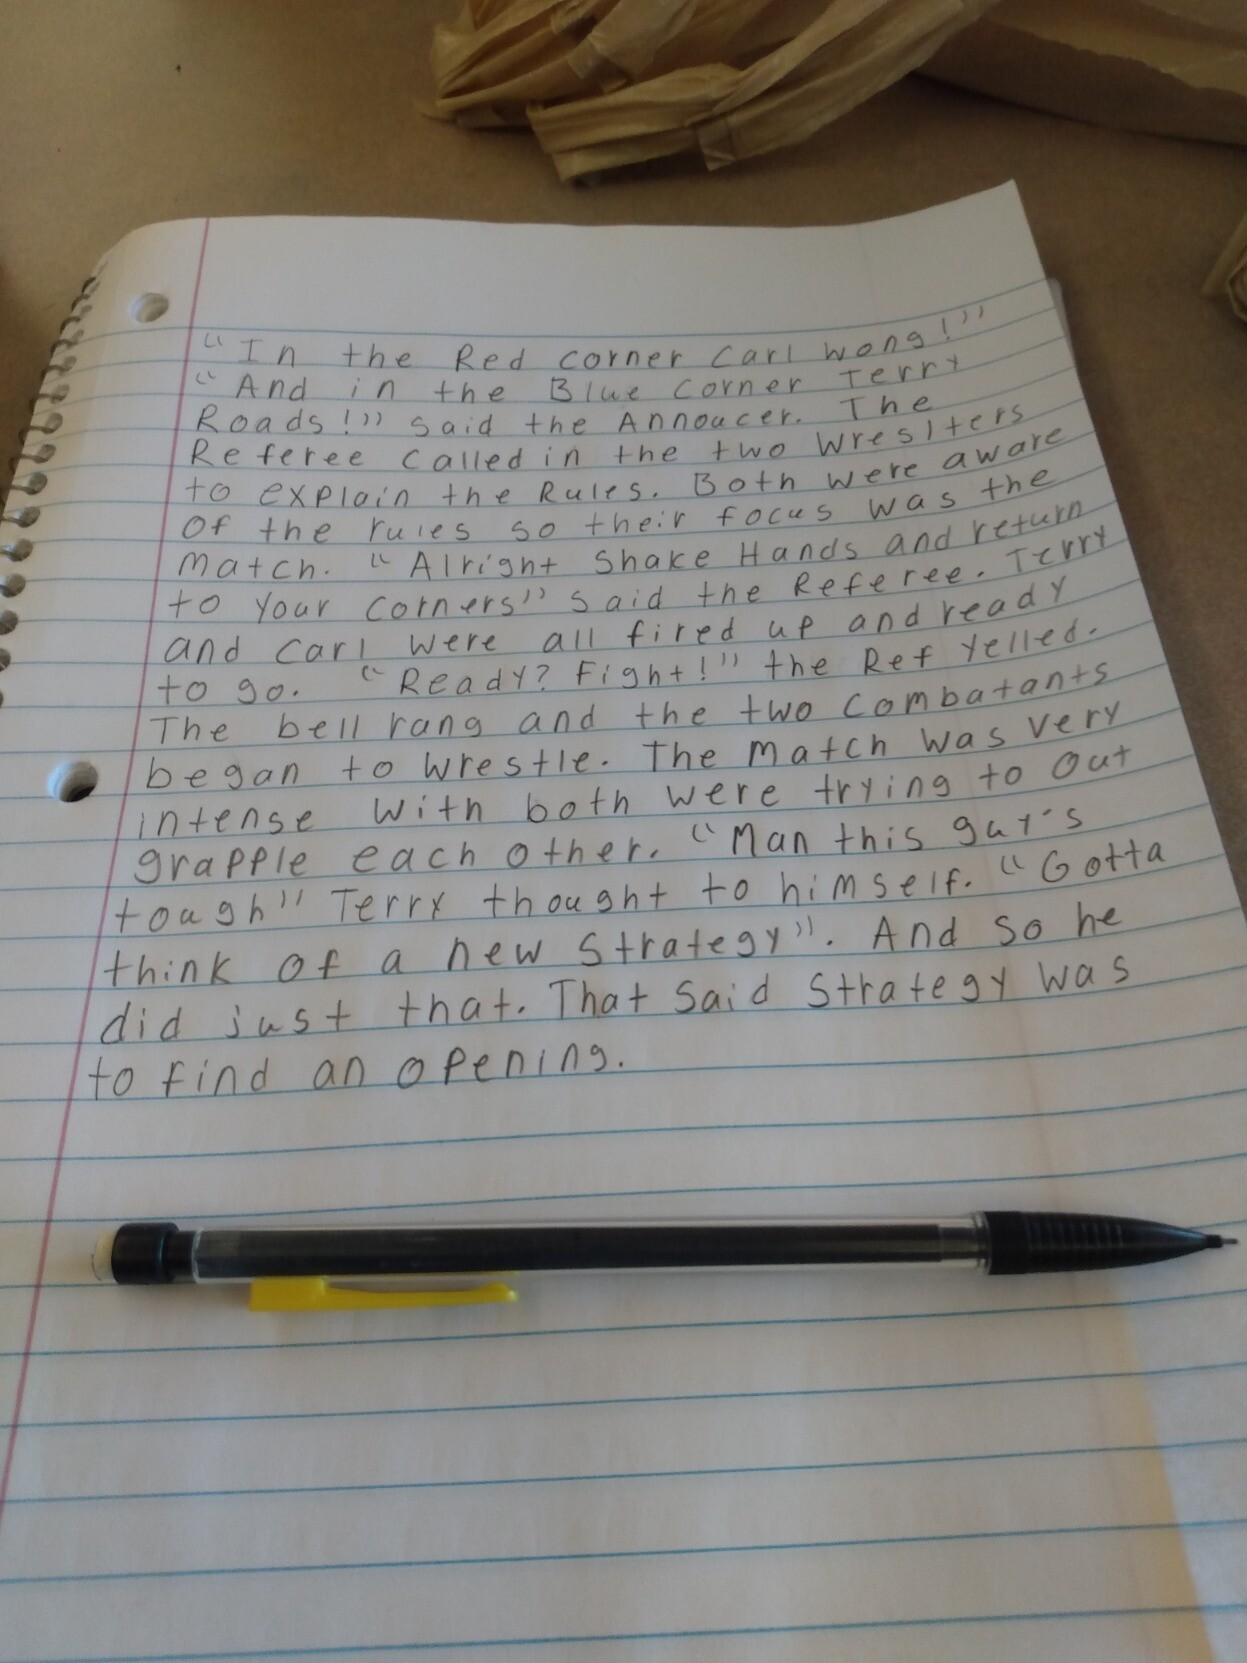 "In the Red corner Carl Wong!"
"And in the Blue Corner Terry
Roads!" said the Annoucer. The
Referee called in the two Wreslters
to explain the Rules. Both were aware
of the rules so their focus was the
Match. "Alright Shake Hands and return
to your corners" said the Referee. Terry
and Carl were all fired up and ready
to go. "Ready? Fight!" the Ref yelled.
The bell rang and the two Combatants
began to wrestle. The Match was very
intense with both were trying to Out
grapple each other. "Man this guy's
tough" Terry thought to himself. "Gotta
think of a new Strategy". And so he
did just that. That said Strategy was
to find an opening.